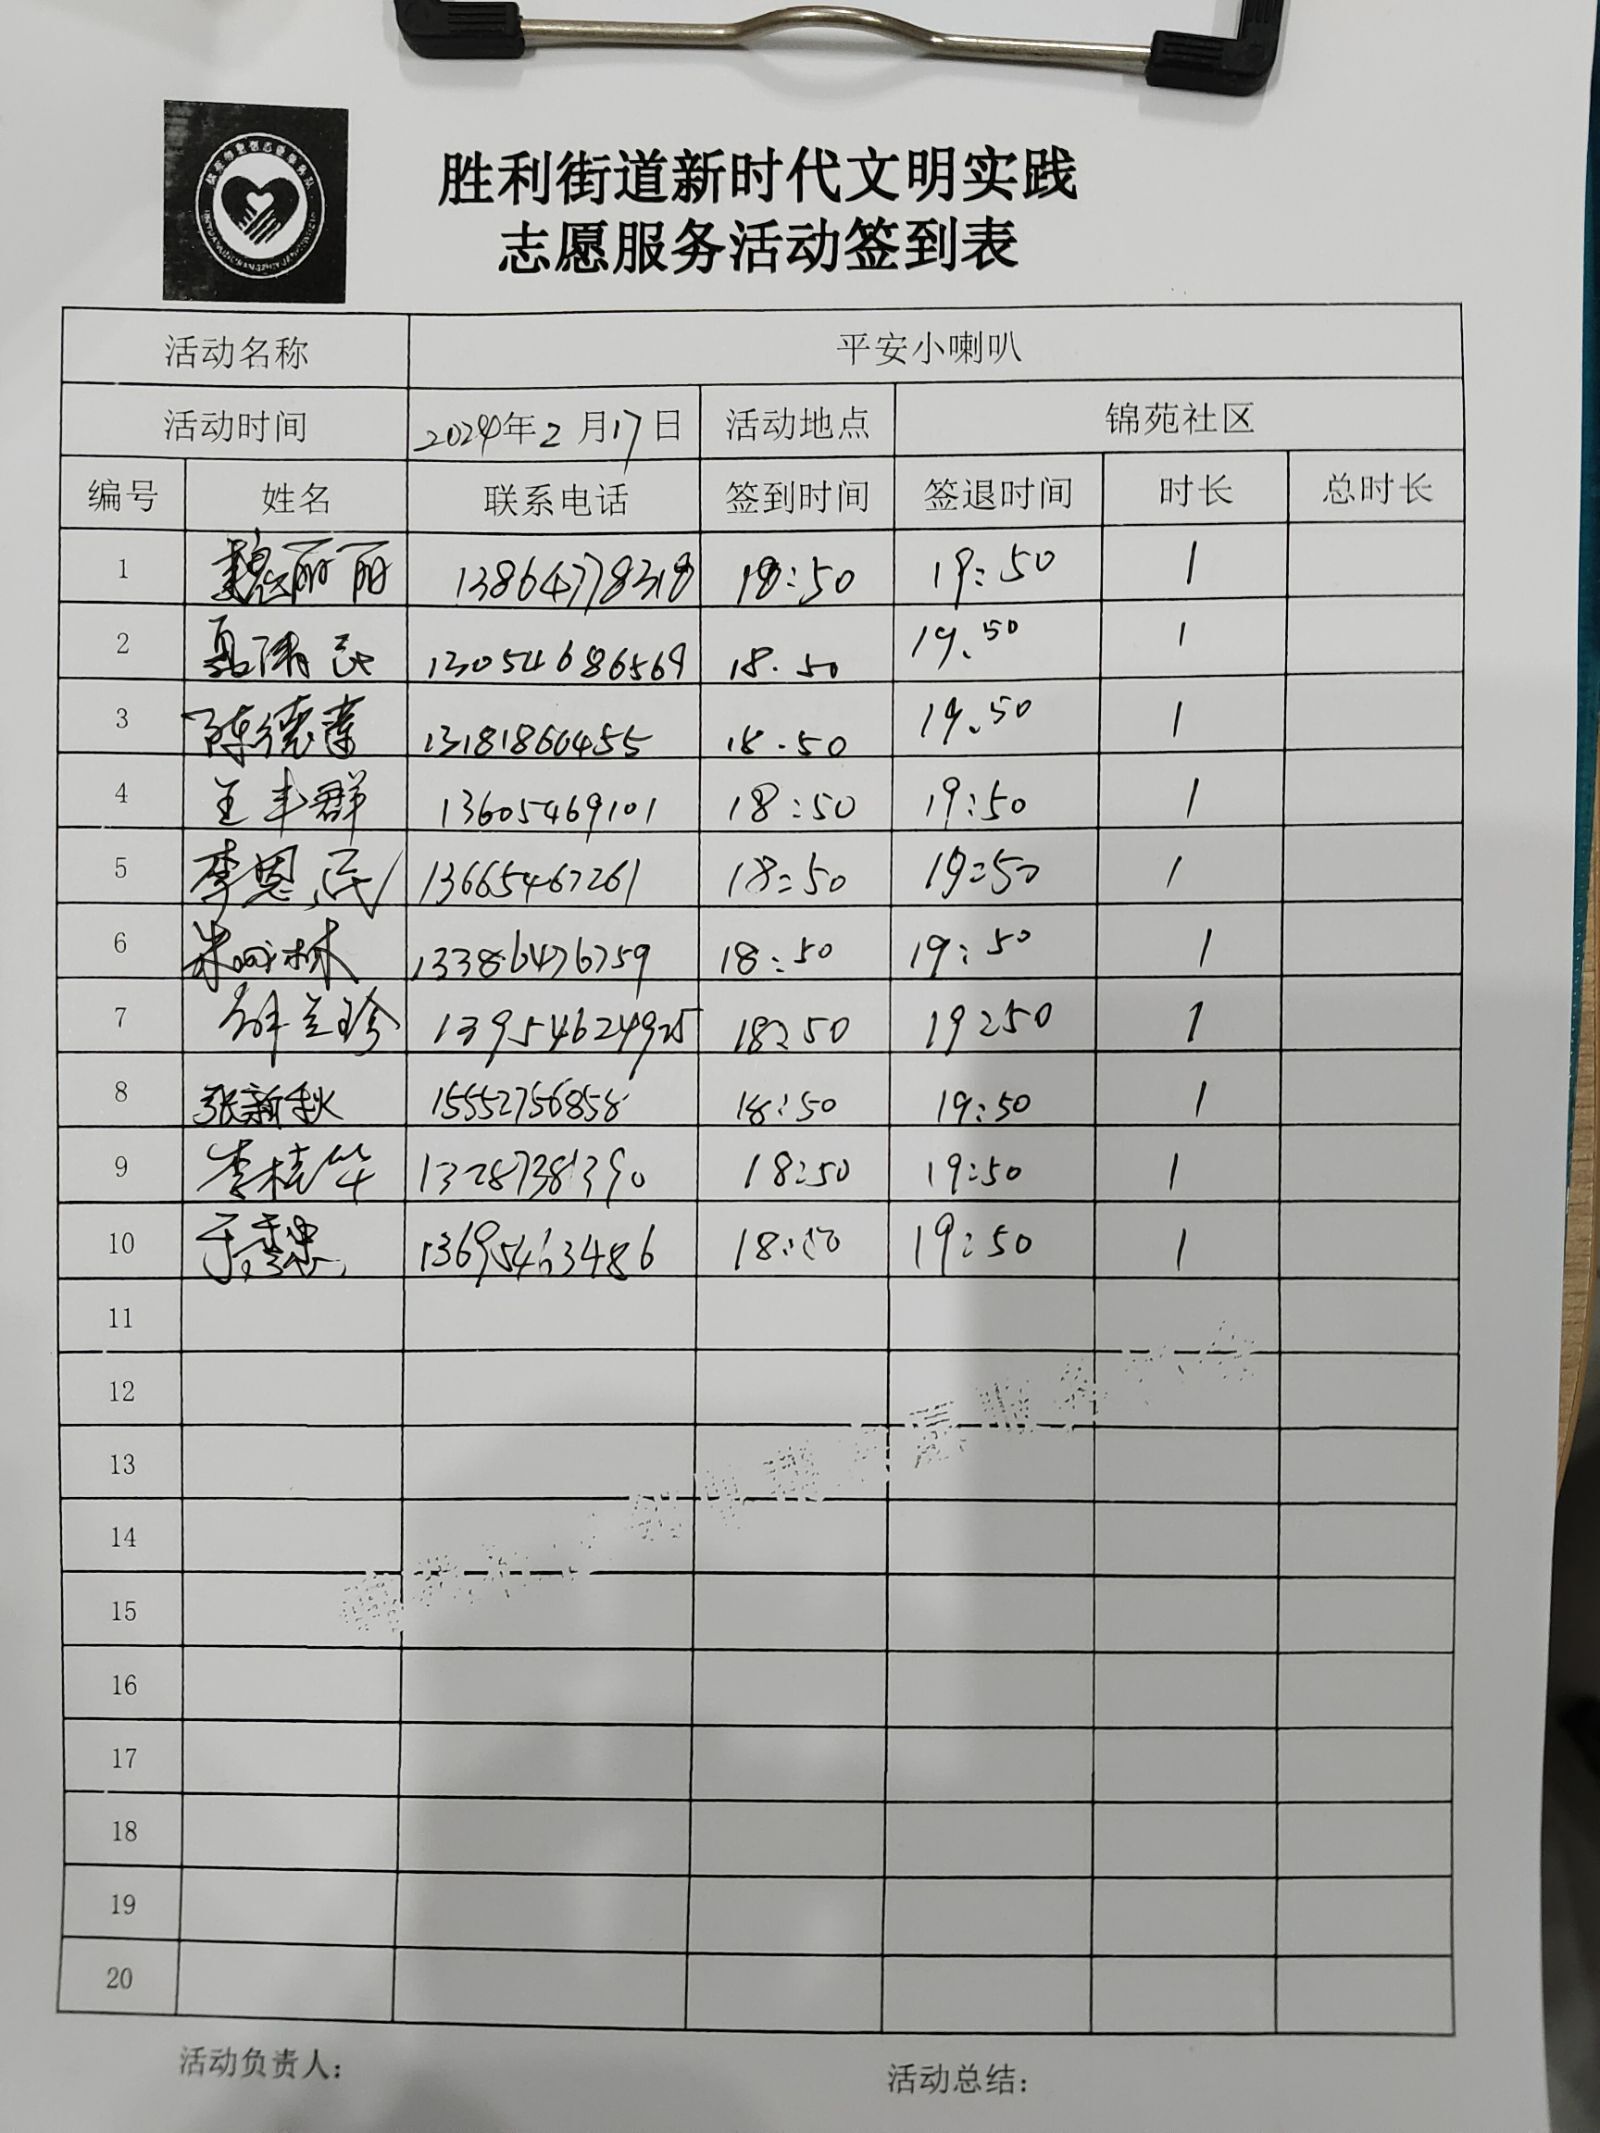 胜利街道新时代文明实践
志愿服务活动签到表
活动名称 平安小喇叭
活动时间 2024年2月17日 活动地点 锦苑社区
编号 姓名 联系电话 签到时间 签退时间 时长 总时长
1 魏丽丽 13864778318 18:50 19:50 1
2 13054686569 18.50 19.50 1
3 陈德 13181866455 18.50 19.50 1
4 王丰群 13605469101 18:50 19:50 1
5 李恩民 13665467261 18:50 19:50 1
6 林 18:50 19:50 1
7 兰珍 13954624925 18:50 19:50 1
8 张新秋 15552756858 18:50 19:50 1
9 李桂华 13287381390 18:50 19:50 1
10 13695463486 18:50 19:50 1
11
12
13
14
15
16
17
18
19
20
活动负责人： 活动总结：